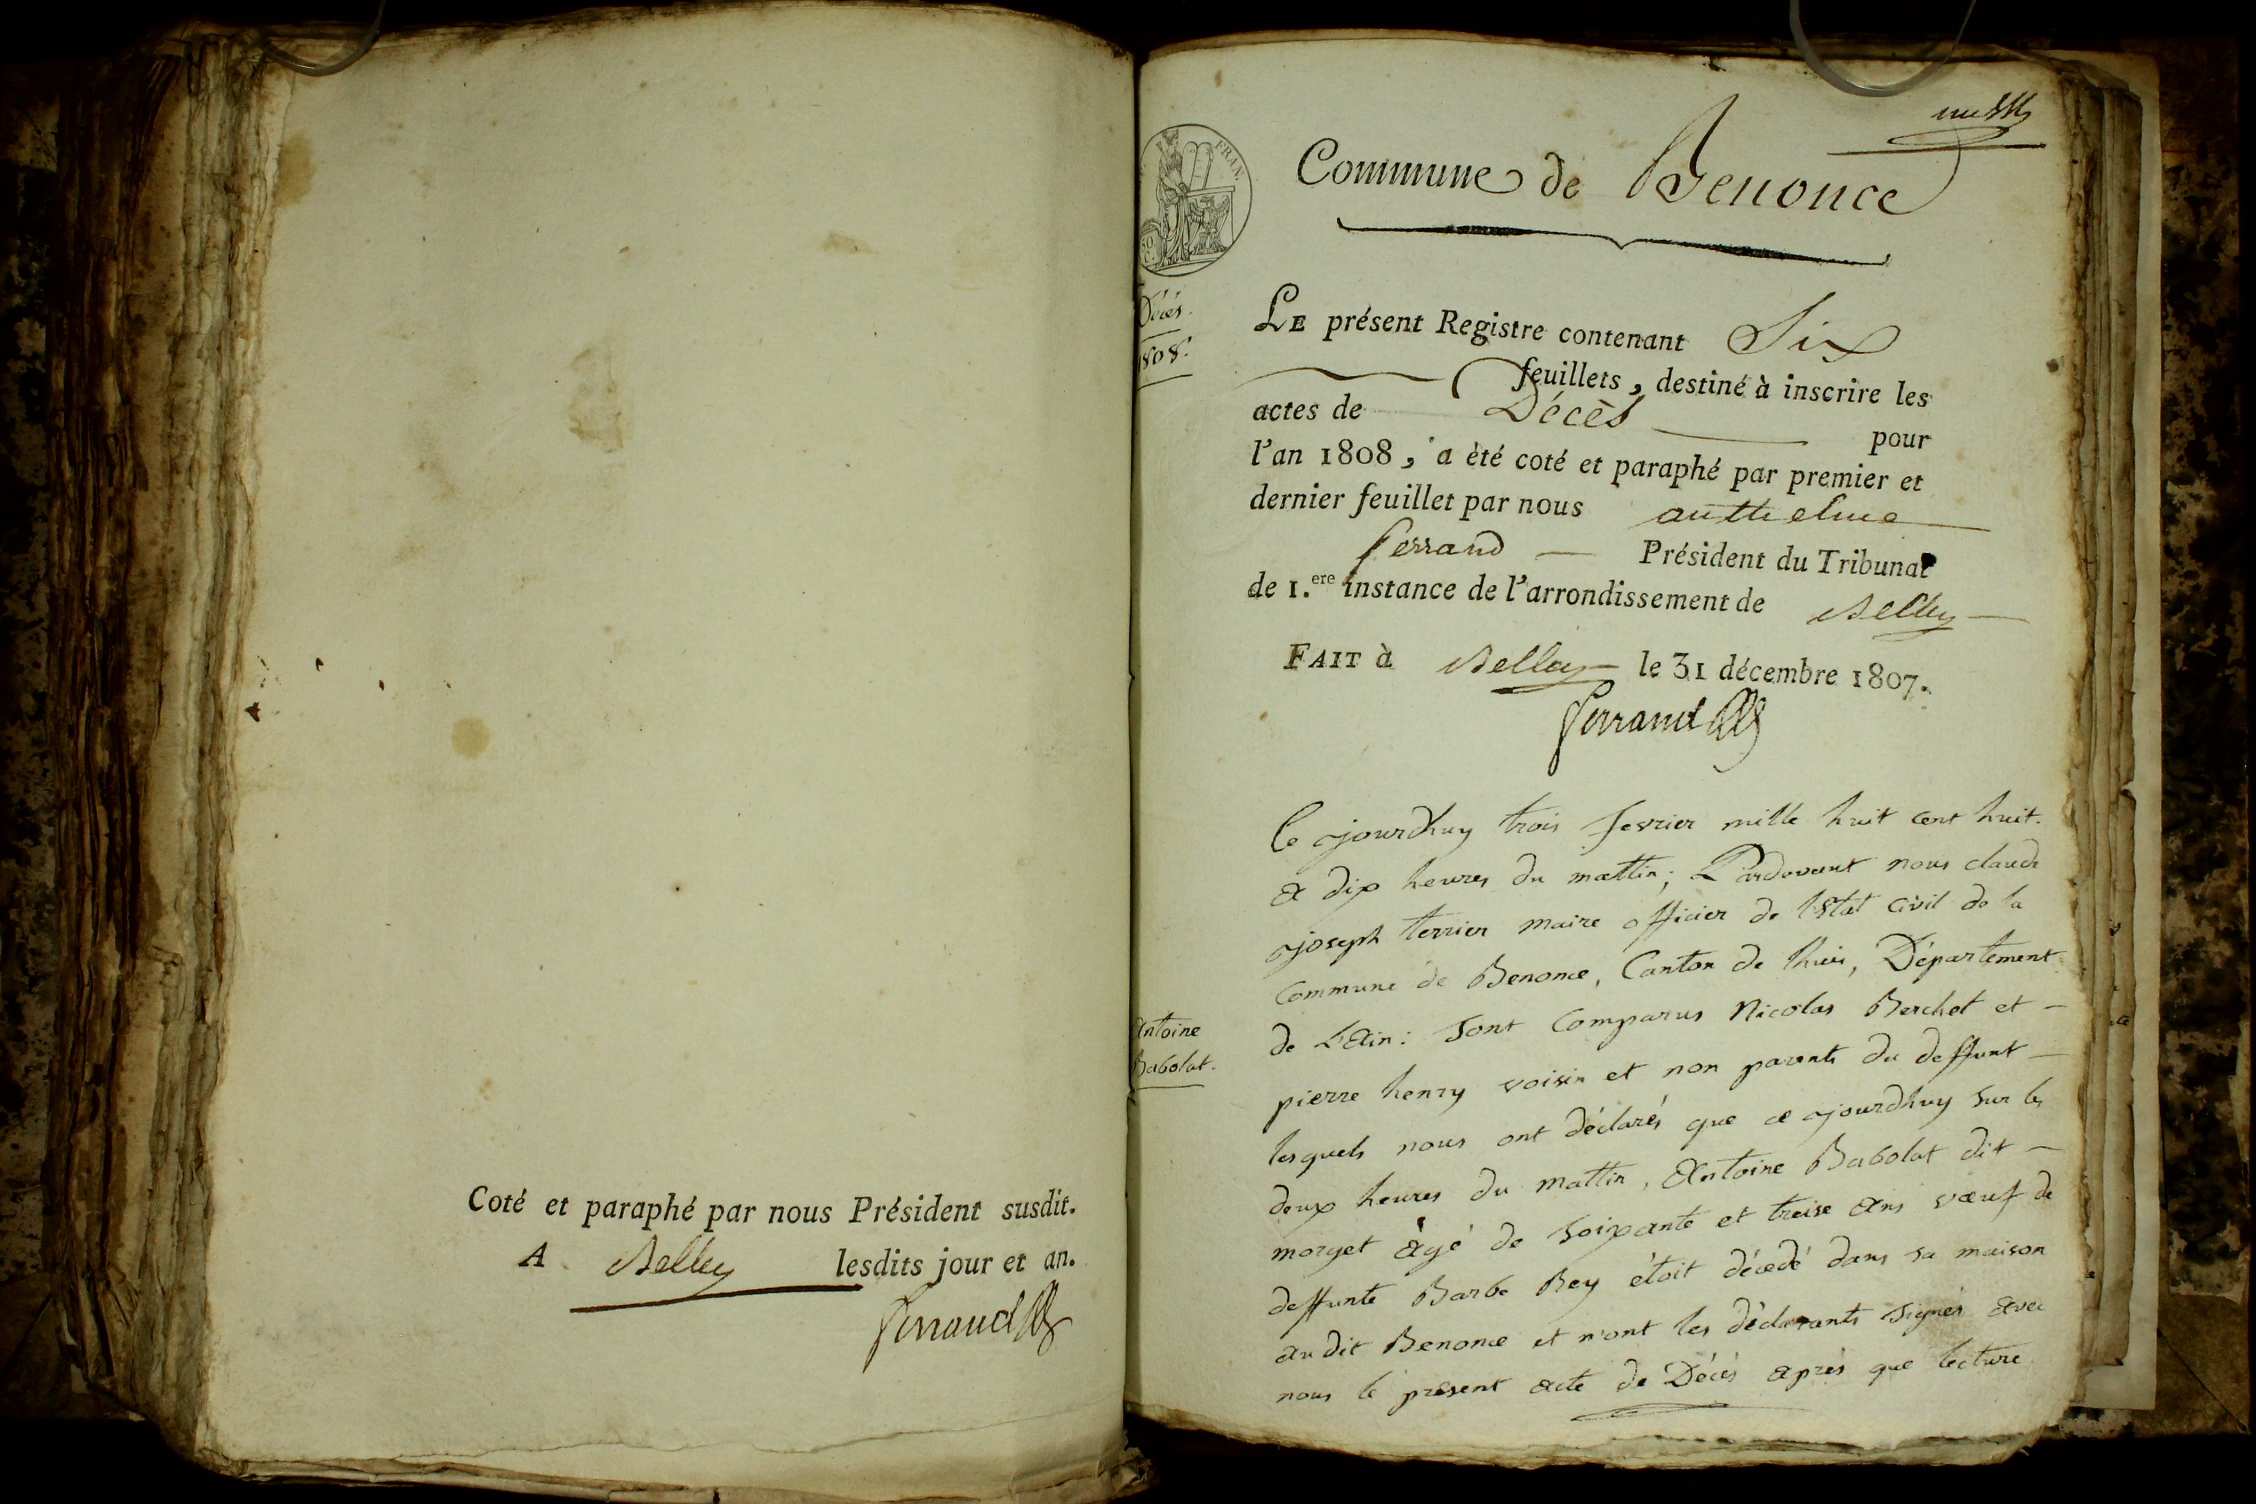 Coté et paraphé par nous Président susdit.
A Belley lesdits jour et an.
Ferrand
FRAN.
Décès.
1808.
Commune de Benonce
LE présent Registre contenant Six
feuillets, destiné à inscrire les
actes de Décès pour
l'an 1808, a été coté et paraphé par premier et
dernier feuillet par nous anthelme
ferrand Président du Tribunal
de 1.ere instance de l'arrondissement de Belley
FAIT à Belley le 31 décembre 1807.
Ferrand
Antoine
Babolat.
Ce ajourdhuy trois fevrier mille huit cent huit.
a dix heures du mattin; Pardevant nous claude
joseph terrier maire officier de l'Etat civil de la
Commune de Benonce, Canton de lhuis, Département
de L'Ain: sont Comparus Nicolas Berchet et
pierre henry voisin et non parents du deffunt
lesquels nous ont déclarés que ce ajourdhuy sur les
deux heures du mattin, Antoine Babolat dit
morget âgé de soixante et treise ans vœuf de
deffunte Barbe Rey étoit décedé dans sa maison
au dit Benonce et n'ont les déclarants signés avec
nous le présent acte de Décès après que lecture